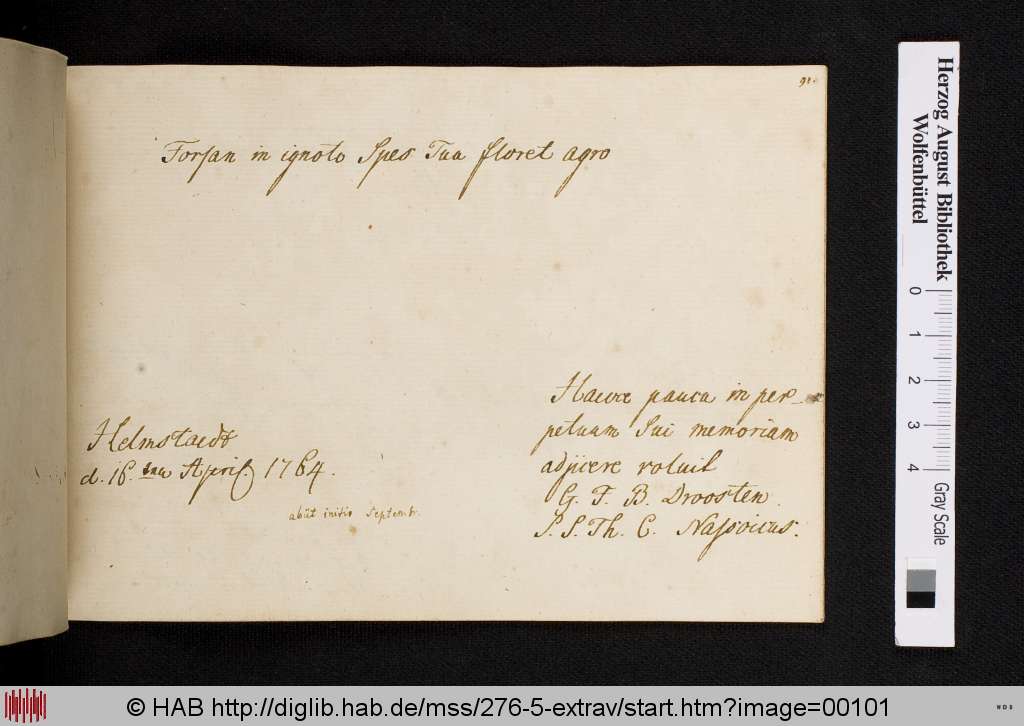 Forsan in ignoto Spes Tua floret agro
Haece pauca in per-
petuum Sui memoriam
adjicere voluit
G. F. B. Droosten.
S. S. Th. C. Nassoicus.
Helmstaedt
d. 16. April. 1764.
abiit initio Septemb.
Herzog August Bibliothek
Wolfenbüttel
0 1 2 3 4
Gray Scale
© HAB http://diglib.hab.de/mss/276-5-extrav/start.htm?image=00101
WDB